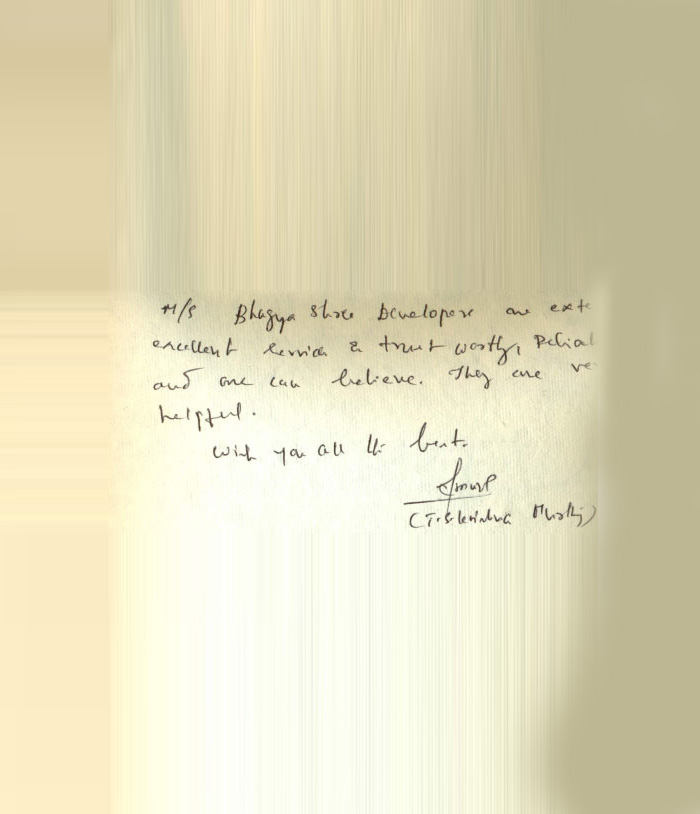 M/S Bhagya Shree Developers are exte
excellent service & trust worthy, Relial
and one can believe. They are ve
helpful.
Wish you all the best.
(T.S. Krishna Murthy)